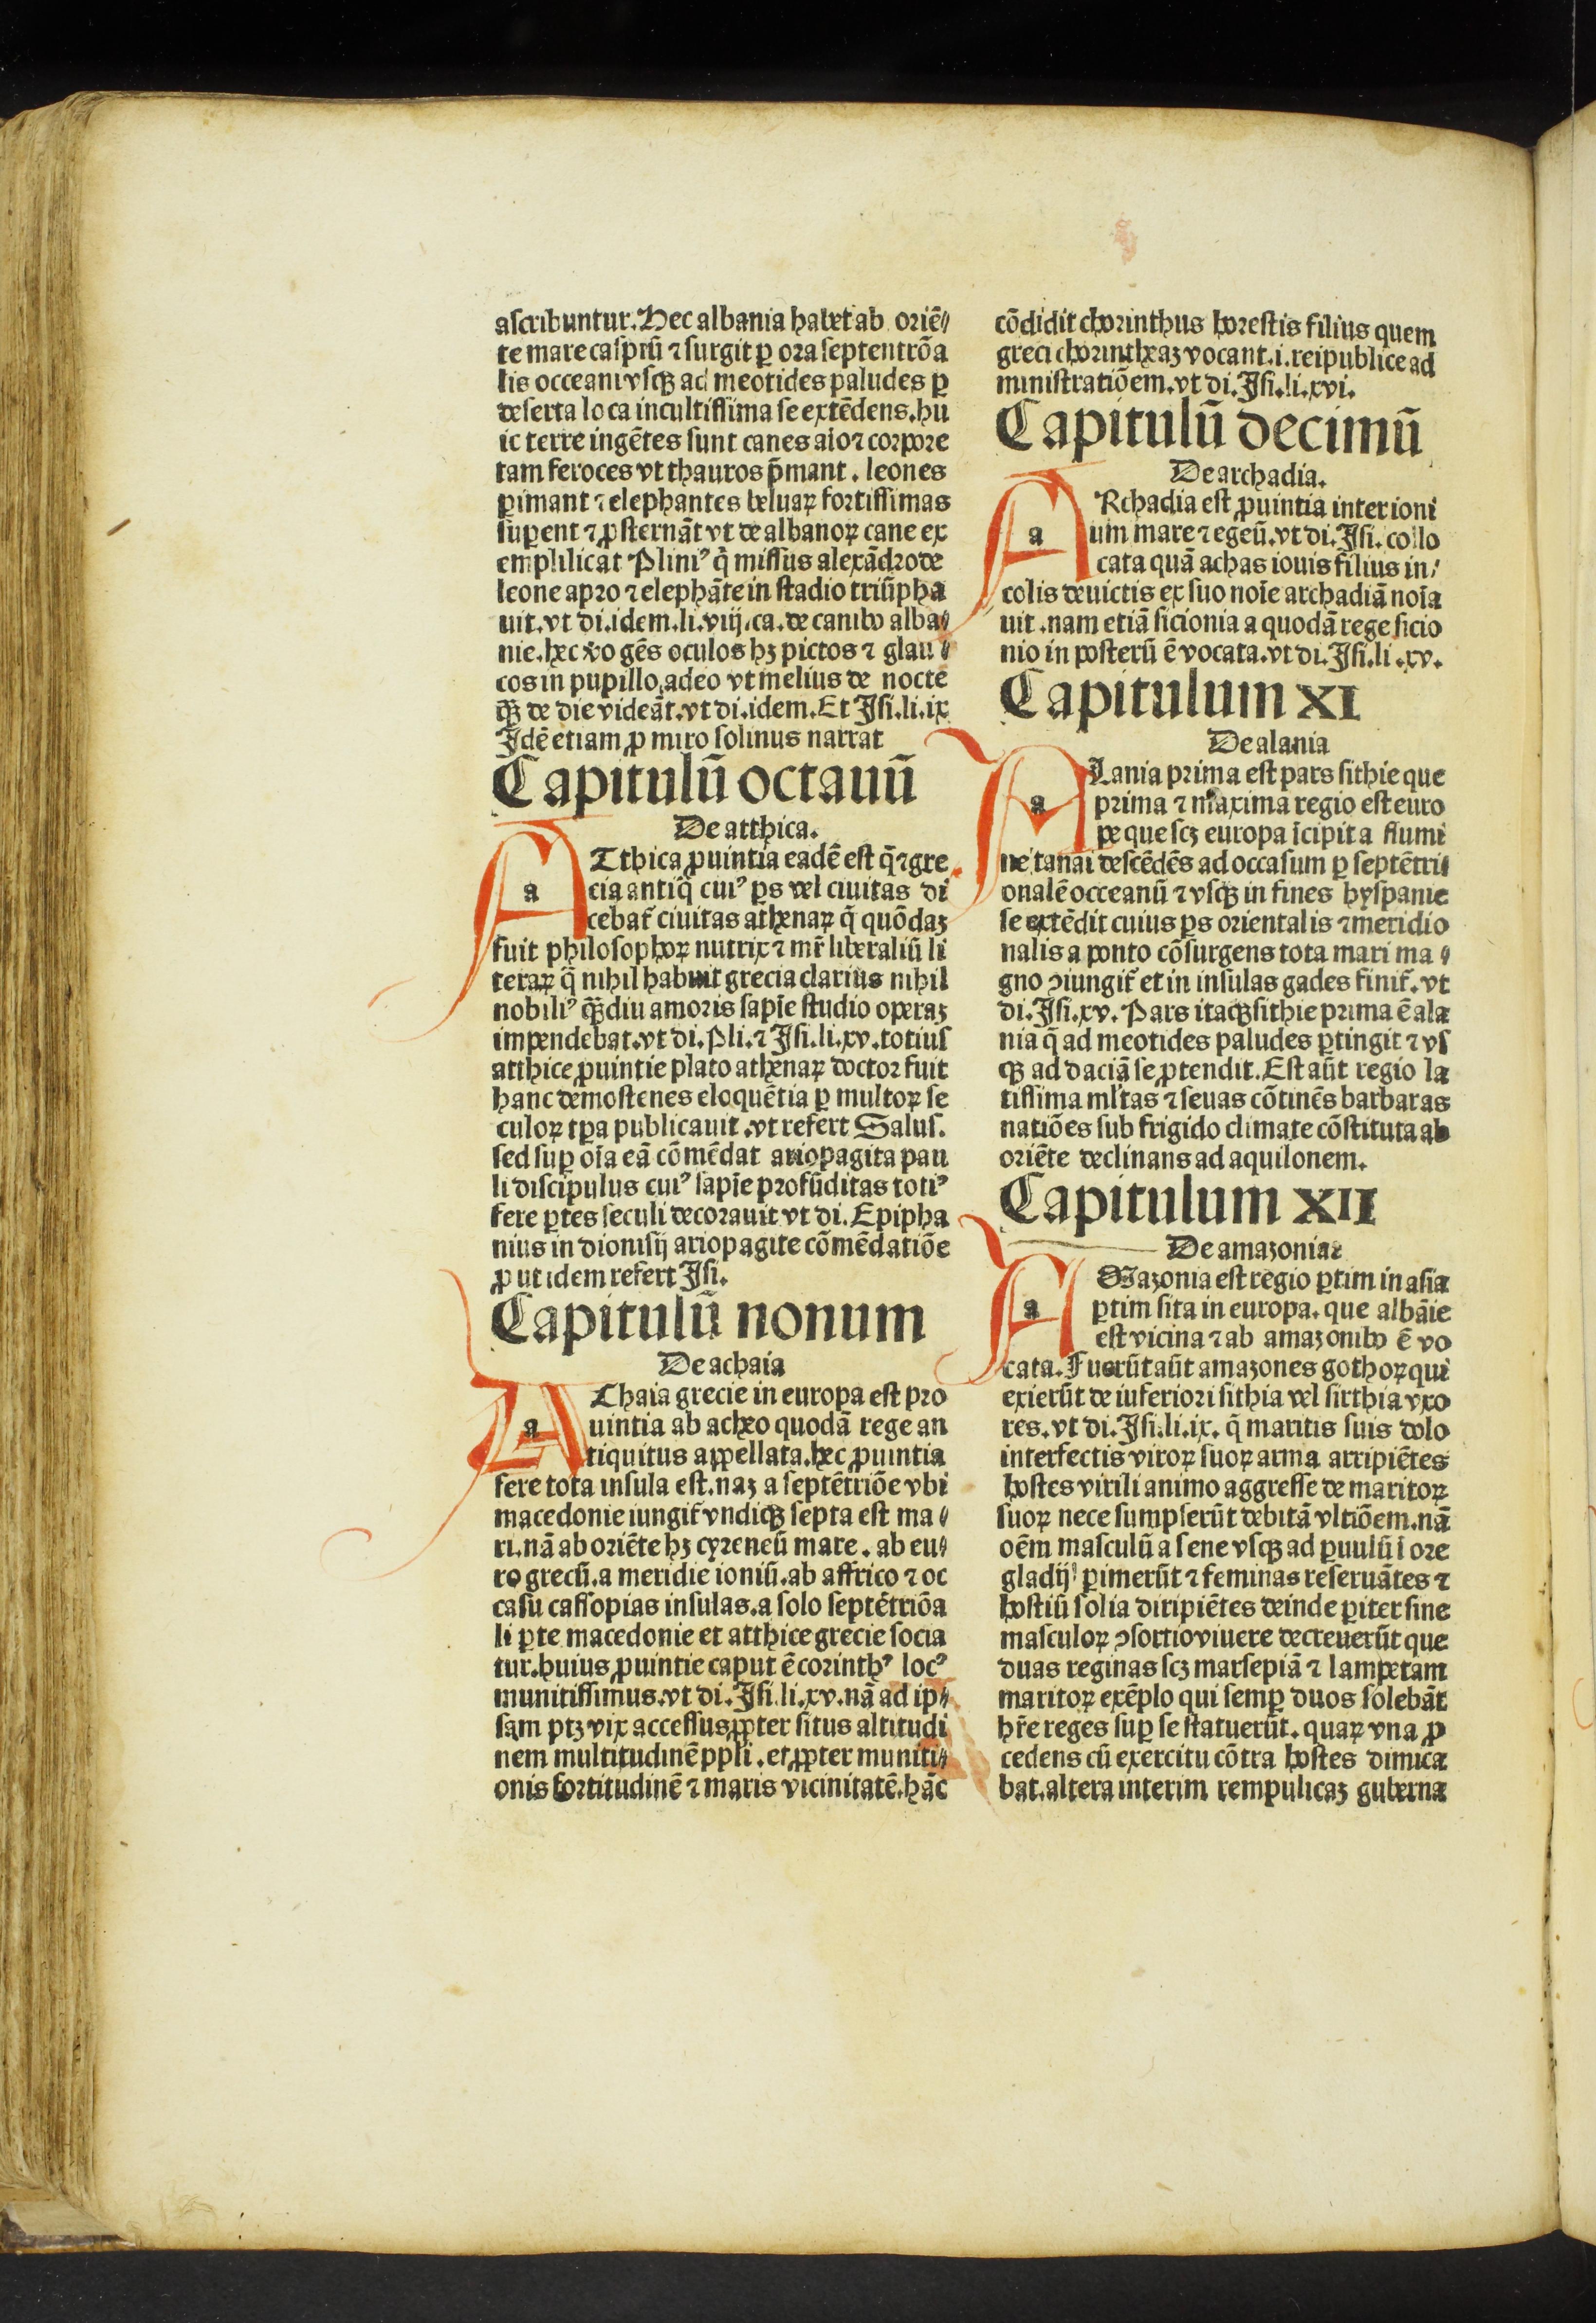 aſcribuntur. Hec albania habet ab oriē⸗
te mare caſpiū ⁊ ſurgit ꝑ ora ſeptentrōa
lis occeani vſqꝫ ad meotides paludes ꝑ
deſerta loca incultiſſima ſe extēdens. hu
ic terre ingētes ſunt canes aīo ⁊ corpore
tam feroces vt thauros p̄mant. leones
ꝑimant ⁊ elephantes beluaꝝ fortiſſimas
ſuꝑent ⁊ ꝓſternāt vt de albanoꝝ cane ex
emplificat Pliniꝰ q̄ miſſus alexādro de
leone apro ⁊ elephāte in ſtadio triūpha
uit. vt di. idem. li. viij. ca. de canibꝰ alba⸗
nie. hec v̄o gēs oculos hꝫ pictos ⁊ glau⸗
cos in pupillo, adeo vt melius de nocte
qꝫ̄ de die videāt. vt di. idem. Et Iſi. li. ix
Idē etiam ꝓ miro ſolinus narrat
Capitulū octauū
De atthica.
a Tthica ꝓuintia eadē eſt q̄ ⁊ gre
cia antiq̄ cuiꝰ ꝑs vel ciuitas di
cebat᷑ ciuitas athenaꝝ q̄ quōdaꝫ
fuit philoſophoꝝ nutrix ⁊ mr̄ liberaliū li
teraꝝ q̄ nihil habuit grecia clarius nihil
nobiliꝰ qꝫ̄diu amoris ſapīe ſtudio operaꝫ
impendebat. vt di. Pli. ⁊ Iſi. li. xv. totiuſ
atthice ꝓuintie plato athenaꝝ doctor fuit
hanc demoſtenes eloquētia ꝑ multoꝝ ſe
culoꝝ tꝑa publicauit. vt refert Saluſ.
ſed ſuꝑ oīa eā cōmēdat ariopagita pau
li diſcipulus cuiꝰ ſapīe profūditas totiꝰ
fere ꝑtes ſeculi decorauit vt di. Epipha
nius in dioniſij ariopagite cōmēdatiōe
ꝓut idem refert Iſi.
Capitulū nonum
De achaia
a Chaia grecie in europa eſt pro
uintia ab acheo quodā rege an
tiquitus appellata. hec ꝓuintia
fere tota inſula eſt. naꝫ a ſeptētriōe vbi
macedonie iungit᷑ vndiqꝫ ſepta eſt ma⸗
ri. nā ab oriēte hꝫ cyreneū mare. ab eu⸗
ro grecū. a meridie ioniū. ab affrico ⁊ oc
caſu caſſopias inſulas. a ſolo ſeptētriōa
li ꝑte macedonie et atthice grecie ſocia
tur. huius ꝓuintie caput ē corinthꝰ locꝰ
munitiſſimus. vt di. Iſi. li. xv. nā ad ip⸗
ſam ptꝫ vix acceſſus ꝓpter ſitus altitudi
nem multitudinē ppli. et ꝓpter muniti⸗
onis fortitudinē ⁊ maris vicinitatē. hāc
cōdidit chorinthus horeſtis filius quem
greci chorintheaꝫ vocant. i. reipublice ad
miniſtratiōem. vt di. Iſi. li. xvi.
Capitulū decimū
De archadia.
a Rchadia eſt ꝓuintia inter ioni
um mare ⁊ egeū. vt di. Iſi. collo
cata quā achas iouis filius in⸗
colis deuictis ex ſuo noīe archadiā noīa
uit. nam etiā ſicionia a quodā rege ſicio
nio in poſterū ē vocata. vt di. Iſi. li. xv.
Capitulum XI
De alania
a Lania prima eſt pars ſithie que
prima ⁊ maxima regio eſt euro
pe que ſcꝫ europa īcipit a flumi
ne tanai deſcēdēs ad occaſum ꝑ ſeptētri⸗
onalē occeanū ⁊ vſqꝫ in fines hyſpanie
ſe extēdit cuius ꝑs orientalis ⁊ meridio
nalis a ponto cōſurgens tota mari ma⸗
gno ꝯiungit᷑ et in inſulas gades finit᷑. vt
di. Iſi. xv. Pars itaqꝫ ſithie prima ē ala
nia q̄ ad meotides paludes ꝑtingit ⁊ vſ
qꝫ ad daciā ſe ꝓtendit. Eſt aūt regio la
tiſſima ml̄tas ⁊ ſeuas cōtinēs barbaras
natiōes ſub frigido climate cōſtituta ab
oriēte declinans ad aquilonem.
Capitulum XII
De amazonia
a Mazonia eſt regio ꝑtim in aſia
ꝑtim ſita in europa. que albāie
eſt vicina ⁊ ab amazonibꝰ ē vo
cata. Fuerūt aūt amazones gothoꝝ qui
exierūt de inferiori ſithia vel ſirthia vxo
res. vt di. Iſi. li. ix. q̄ maritis ſuis dolo
interfectis viroꝝ ſuoꝝ arma arripiētes
hoſtes virili animo aggreſſe de maritoꝝ
ſuoꝝ nece ſumpſerūt debitā vltiōem. nā
oēm maſculū a ſene vſqꝫ ad ꝑuulū ī ore
gladij ꝑimerūt ⁊ feminas reſeruātes ⁊
hoſtiū ſolia diripiētes deinde ꝑiter ſine
maſculoꝝ ꝯſortio viuere decreuerūt que
duas reginas ſcꝫ marſepiā ⁊ lampetam
maritoꝝ exēplo qui ſemꝑ duos ſolebāt
hr̄e reges ſuꝑ ſe ſtatuerūt. quaꝝ vna ꝓ
cedens cū exercitu cōtra hoſtes dimica
bat. altera interim rempulicaꝫ guberna